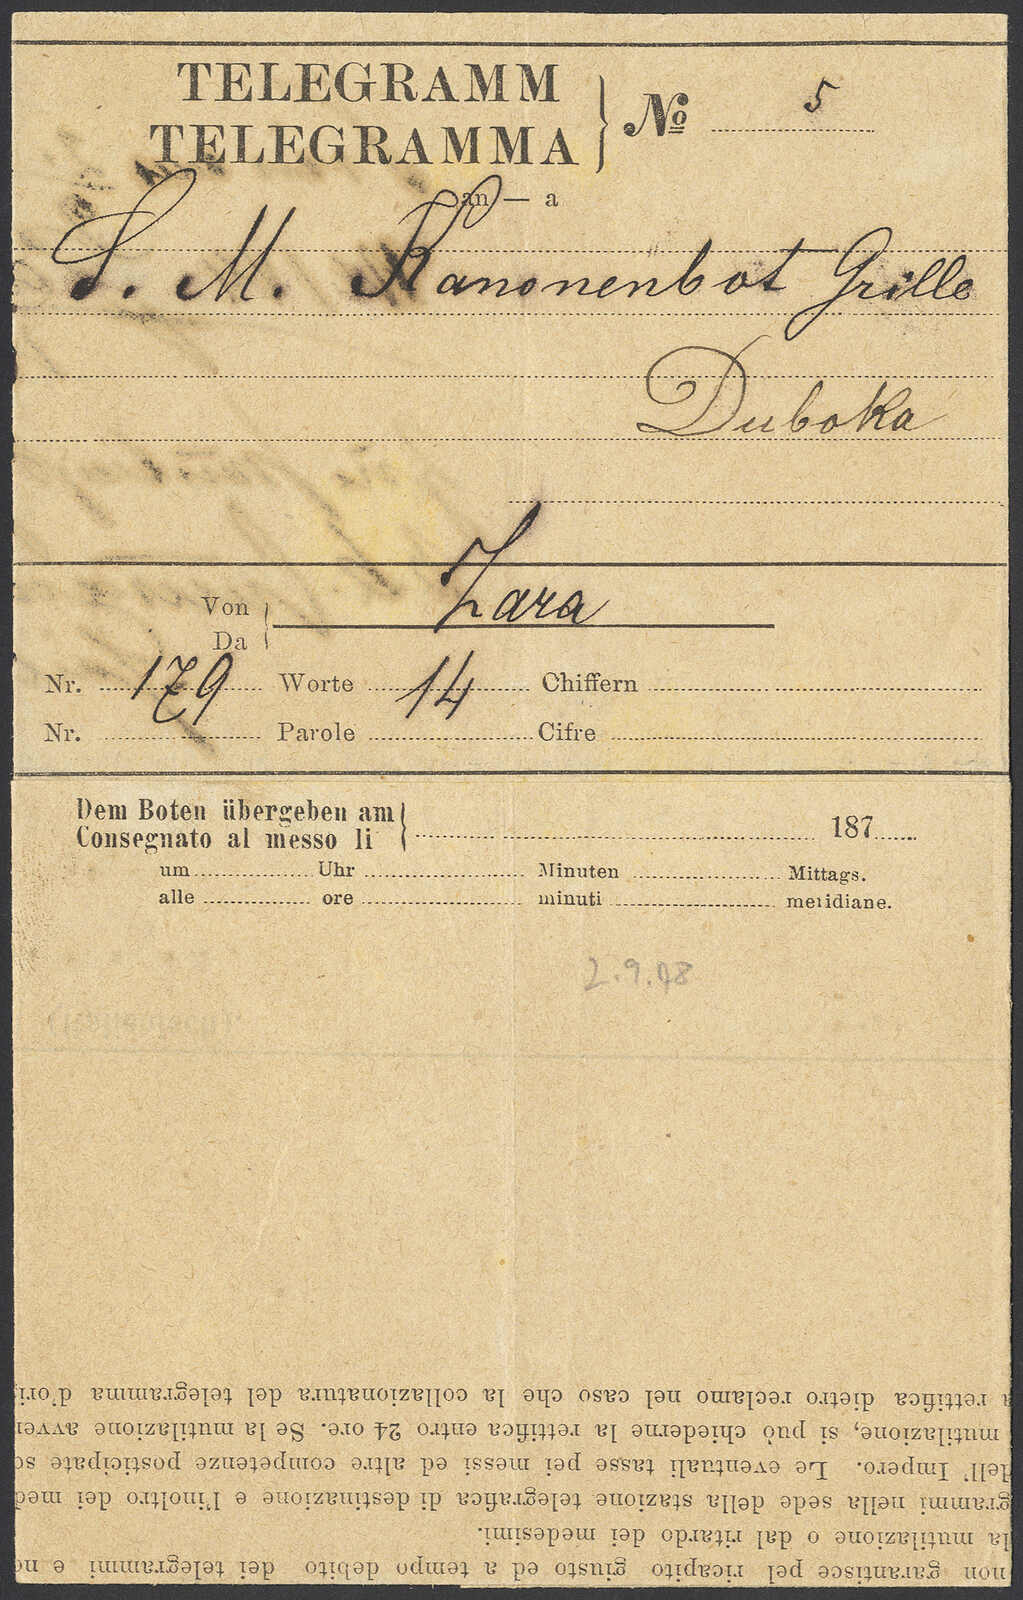 TELEGRAMM
TELEGRAMMA
No 5
an — a
S. M. Kanonenbot Grille
Duboka
Von
Da
Zara
Nr. 179 Worte 14 Chiffern
Nr. Parole Cifre
Dem Boten übergeben am
Consegnato al messo li
187
um Uhr Minuten Mittags.
alle ore minuti meridiane.
2.9.78
non garantisce pel ricapito giusto ed a tempo debito dei telegrammi e
la mutilazione o dal ritardo dei medesimi.
grammi nella sede della stazione telegrafica di destinazione e l'inoltro dei med
dell' Impero. Le eventuali tasse pei messi ed altre competenze posticipate
mutilazione, si può chiederne la rettifica entro 24 ore. Se la mutilazione
a rettifica dietro reclamo nel caso che la collazionatura del telegramma d'ori